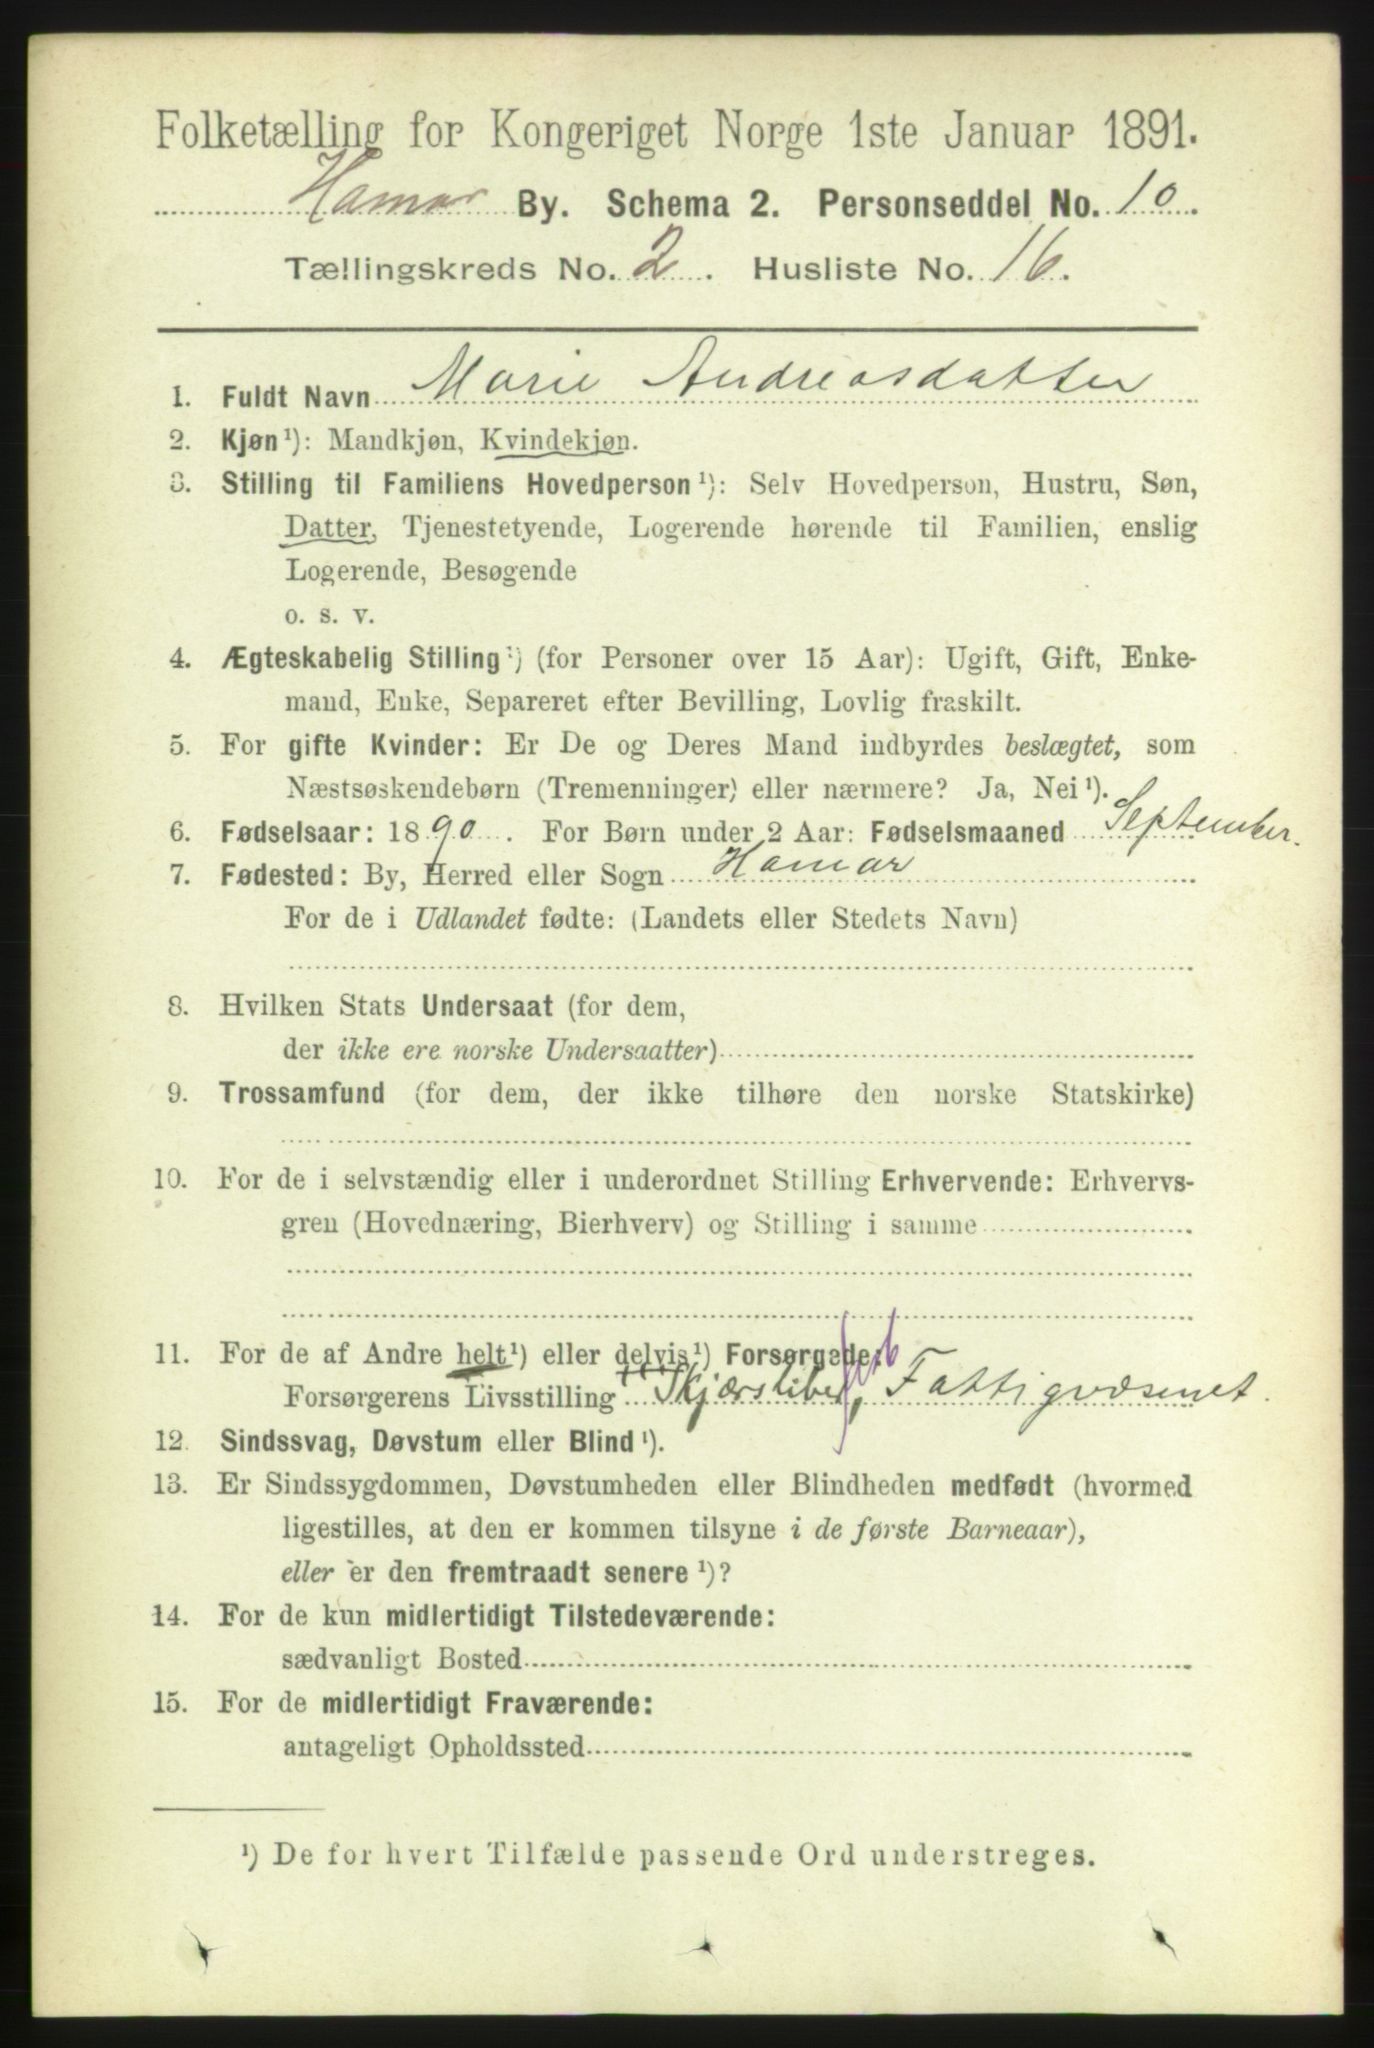 Folketælling for Kongeriget Norge 1ste Januar 1891.
Hamar By. Schema 2. Personseddel No. 10
Tællingskreds No. 2. Husliste No. 16.
1. Fuldt Navn Marie Andreasdatter
2. Kjøn¹): Mandkjøn, Kvindekjøn.
3. Stilling til Familiens Hovedperson¹): Selv Hovedperson, Hustru, Søn,
Datter, Tjenestetyende, Logerende hørende til Familien, enslig
Logerende, Besøgende
o. s. v.
4. Ægteskabelig Stilling¹) (for Personer over 15 Aar): Ugift, Gift, Enke-
mand, Enke, Separeret efter Bevilling, Lovlig fraskilt.
5. For gifte Kvinder: Er De og Deres Mand indbyrdes beslægtet, som
Næstsøskendebørn (Tremenninger) eller nærmere? Ja, Nei¹).
6. Fødselsaar: 1890. For Børn under 2 Aar: Fødselsmaaned September.
7. Fødested: By, Herred eller Sogn Hamar
For de i Udlandet fødte: (Landets eller Stedets Navn)
8. Hvilken Stats Undersaat (for dem,
der ikke ere norske Undersaatter)
9. Trossamfund (for dem, der ikke tilhøre den norske Statskirke)
10. For de i selvstændig eller i underordnet Stilling Erhvervende: Erhvervs-
gren (Hovednæring, Bierhverv) og Stilling i samme
11. For de af Andre helt¹) eller delvis¹) Forsørgede:
Forsørgerens Livsstilling Skjærsliber, Fattigvæsenet.
12. Sindssvag, Døvstum eller Blind¹).
13. Er Sindssygdommen, Døvstumheden eller Blindheden medfødt (hvormed
ligestilles, at den er kommen tilsyne i de første Barneaar),
eller er den fremtraadt senere¹)?
14. For de kun midlertidigt Tilstedeværende:
sædvanligt Bosted
15. For de midlertidigt Fraværende:
antageligt Opholdssted
¹) De for hvert Tilfælde passende Ord understreges.